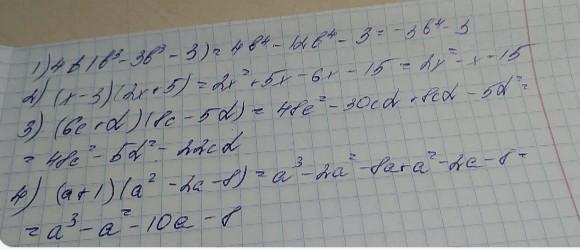 1) 4b(b³ - 3b³ - 3) = 4b⁴ - 12b⁴ - 3 = -3b⁴ - 3
2) (x - 3)(2x + 5) = 2x² + 5x - 6x - 15 = 2x² - x - 15
3) (6c + d)(8c - 5d) = 48c² - 30cd + 8cd - 5d² =
= 48c² - 5d² - 22cd
4) (a + 1)(a² - 2a - 8) = a³ - 2a² - 8a + a² - 2a - 8 =
= a³ - a² - 10a - 8